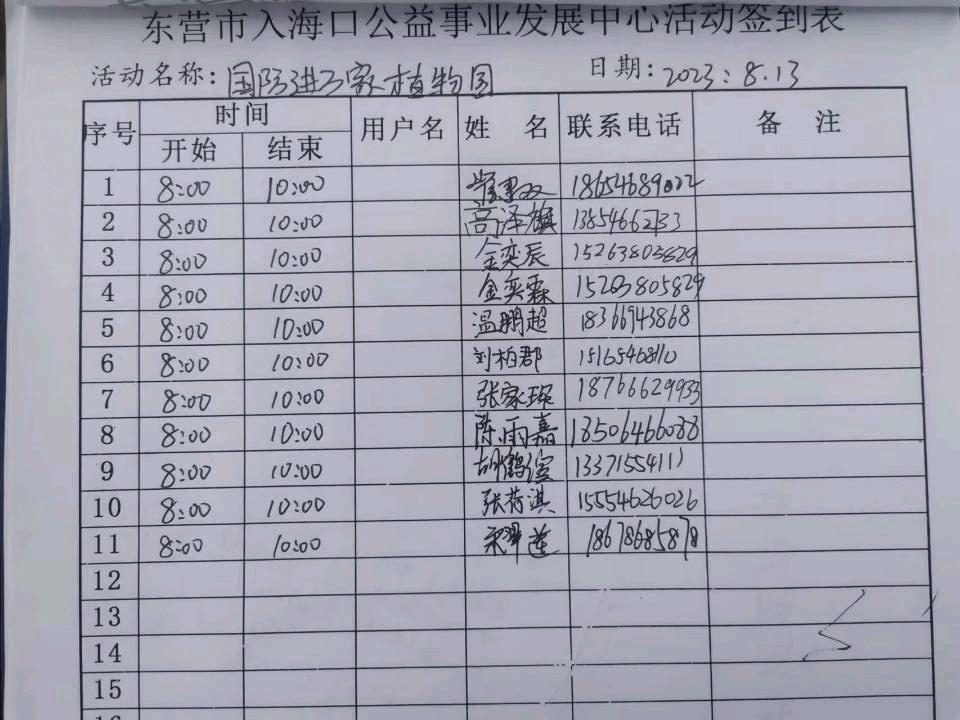 东营市入海口公益事业发展中心活动签到表
活动名称: 国防进万家植物园 日期: 2023.8.13
序号 时间 用户名 姓 名 联系电话 备 注
开始 结束
1 8:00 10:00 18654689022
2 8:00 10:00 高泽旗 13854662733
3 8:00 10:00 金奕辰 15263805829
4 8:00 10:00 金奕霖 15263805829
5 8:00 10:00 温鹏超 18366943868
6 8:00 10:00 刘柏郡 15165468110
7 8:00 10:00 张家琛 18766629933
8 8:00 10:00 陈雨嘉 18506466088
9 8:00 10:00 胡鹤 13371554111
10 8:00 10:00 张荷淇 15554626026
11 8:00 10:00 18678685878
12
13
14
15